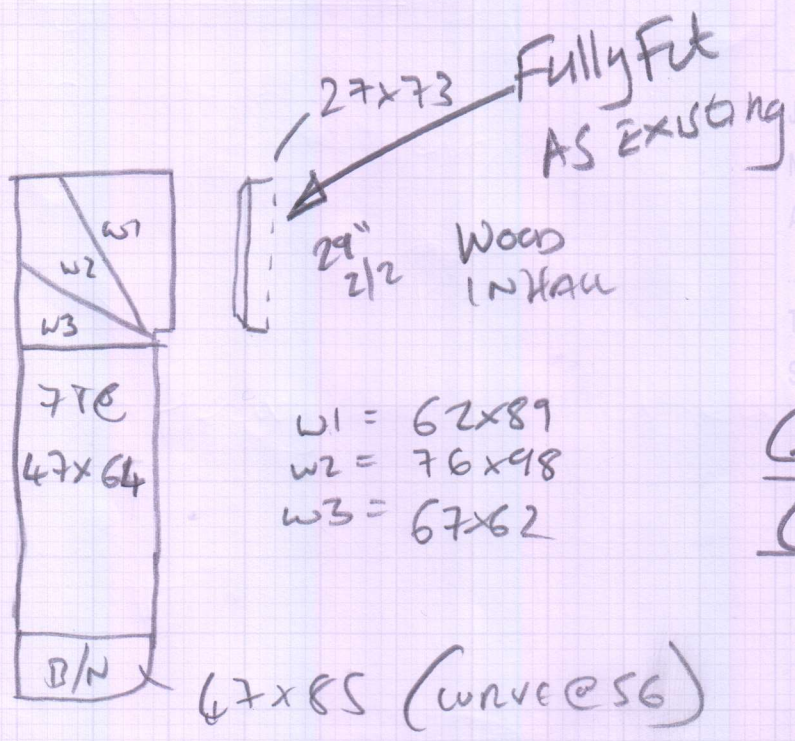 27x73
Fully Fit
AS Existing
W1
W2
W3
29"
2/2
WOOD
IN HALL
47x64
W1 = 62x89
W2 = 76x98
W3 = 67x62
B/N
67x85 (CURVE @ 56)